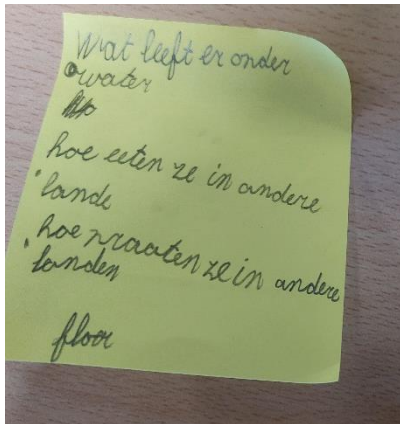 Wat leeft er onder
water
hoe eeten ze in andere
lande
hoe praaten ze in andere
landen
floor